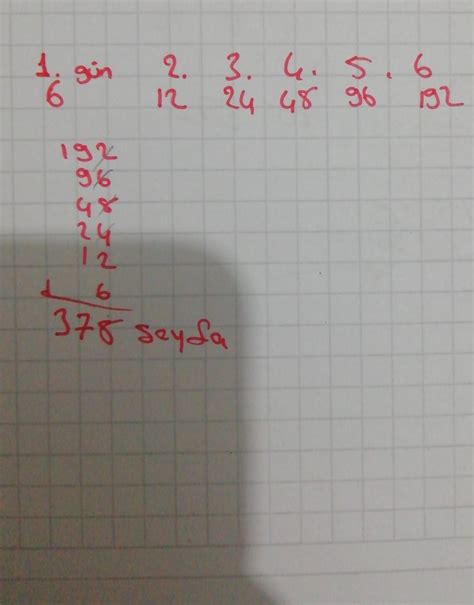 1. gün 2. 3. 4. 5. 6
6 12 24 48 96 192
192
96
48
24
12
+ 6
378 sayfa